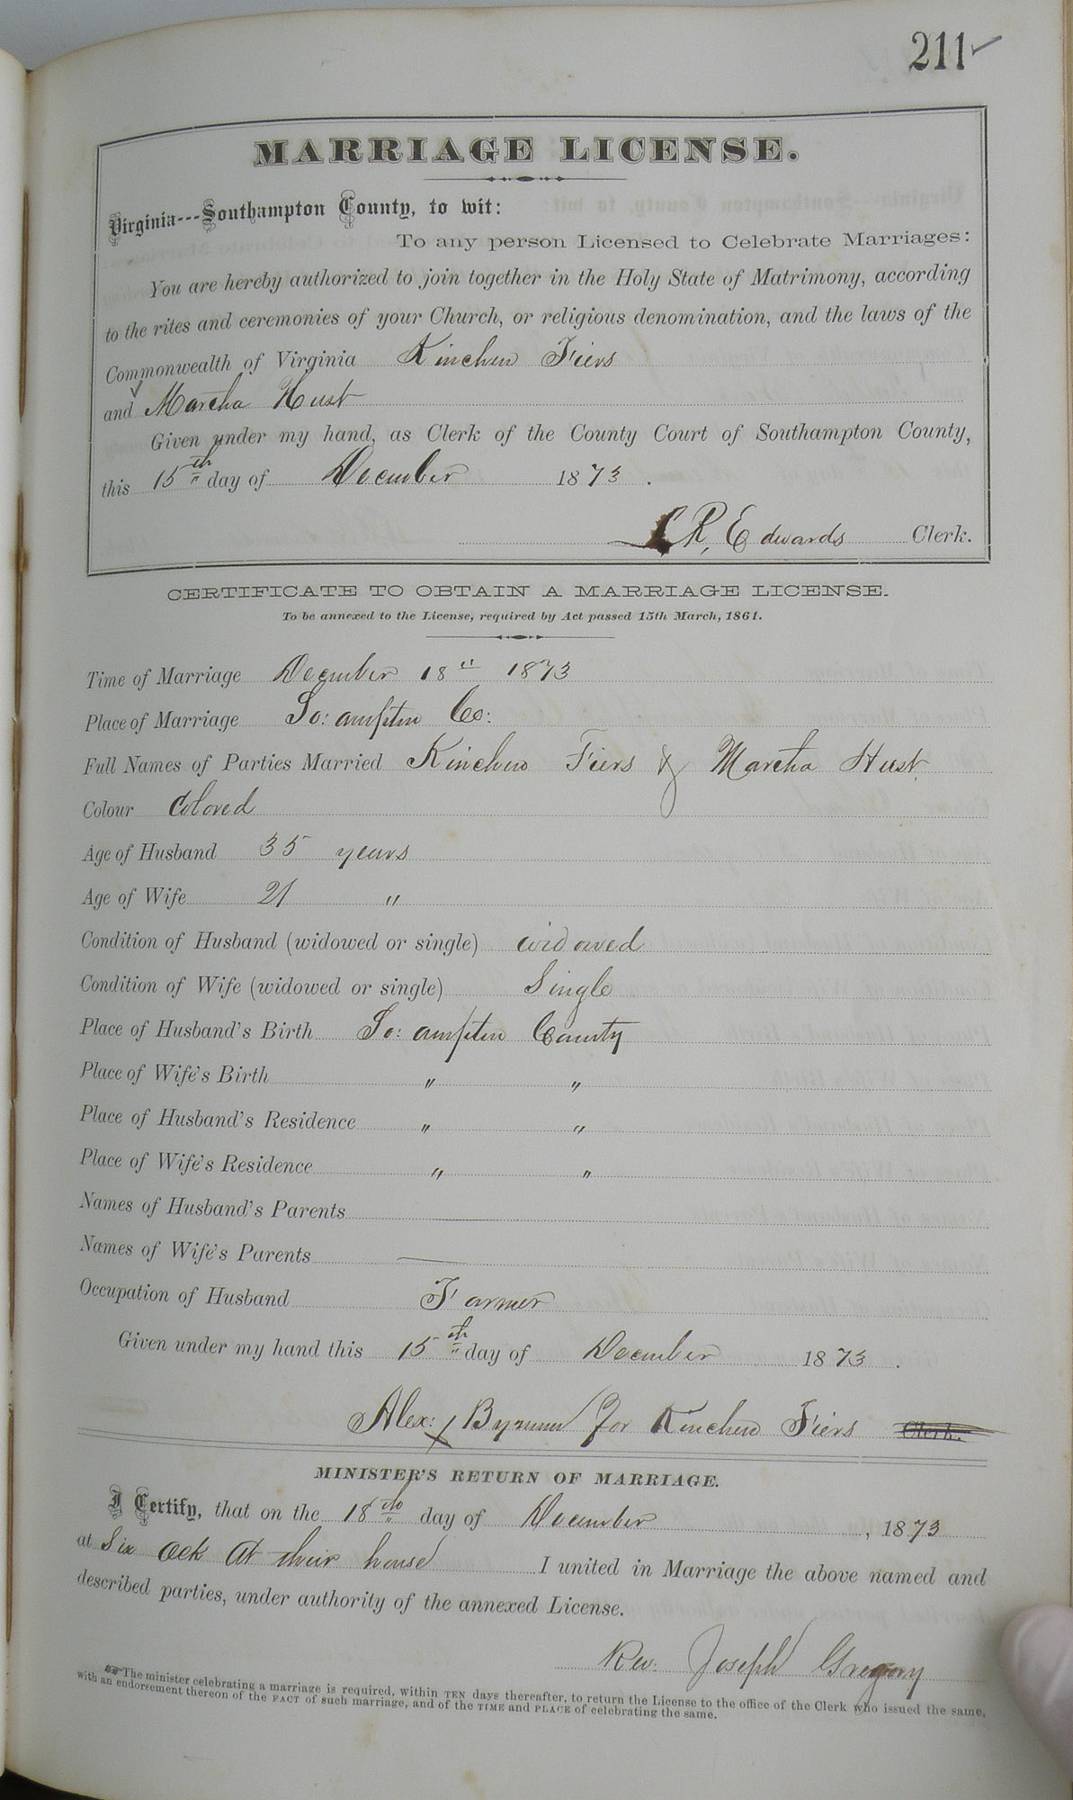 211
MARRIAGE LICENSE.
Virginia---Southampton County, to wit:
To any person Licensed to Celebrate Marriages:
You are hereby authorized to join together in the Holy State of Matrimony, according
to the rites and ceremonies of your Church, or religious denomination, and the laws of the
Commonwealth of Virginia Kinchen Fiers
and Martha Hust
Given under my hand, as Clerk of the County Court of Southampton County,
this 15th day of December 1873.
L R, Edwards Clerk.
CERTIFICATE TO OBTAIN A MARRIAGE LICENSE.
To be annexed to the License, required by Act passed 15th March, 1861.
Time of Marriage December 18" 1873
Place of Marriage So: ampton Co:
Full Names of Parties Married Kinchen Fiers & Martha Hust
Colour Colored
Age of Husband 35 years
Age of Wife 21 "
Condition of Husband (widowed or single) widowed
Condition of Wife (widowed or single) Single
Place of Husband's Birth So: ampton County
Place of Wife's Birth " "
Place of Husband's Residence " "
Place of Wife's Residence " "
Names of Husband's Parents —
Names of Wife's Parents —
Occupation of Husband Farmer
Given under my hand this 15th day of December 1873.
Alex: X Bynum for Kinchen Fiers Clerk.
MINISTER'S RETURN OF MARRIAGE.
I Certify, that on the 18th day of December, 1873
at Six ock At their house I united in Marriage the above named and
described parties, under authority of the annexed License.
Rev. Joseph Gregory
The minister celebrating a marriage is required, within TEN days thereafter, to return the License to the office of the Clerk who issued the same,
with an endorsement thereon of the FACT of such marriage, and of the TIME and PLACE of celebrating the same.